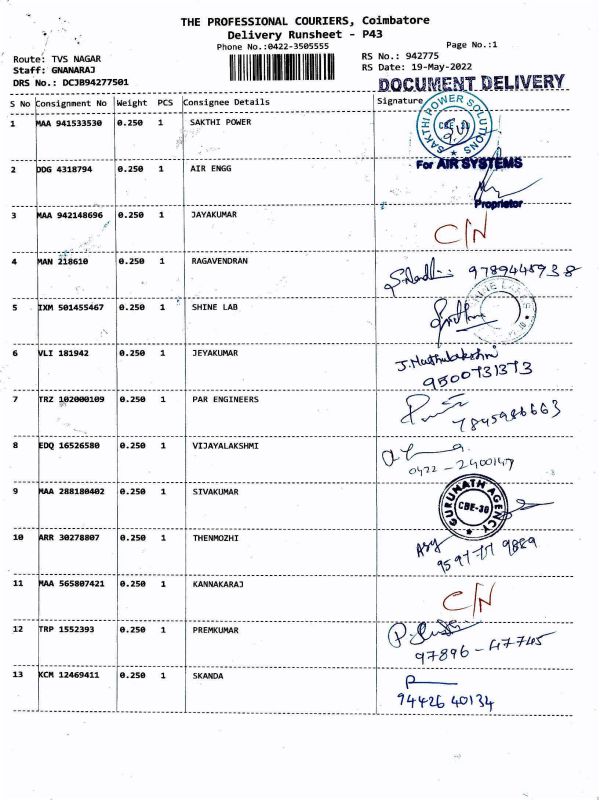 THE PROFESSIONAL COURIERS, Coimbatore
Delivery Runsheet - P43
Phone No.:0422-3505555
Page No.:1
Route: TVS NAGAR
RS No.: 942775
Staff: GNANARAJ
RS Date: 19-May-2022
DRS No.: DCJB94277501
DOCUMENT DELIVERY
S No Consignment No Weight PCS Consignee Details Signature
1 MAA 941533530 0.250 1 SAKTHI POWER
SAKTHI POWER SOLUTIONS
CBE-36
2 DDG 4318794 0.250 1 AIR ENGG
For AIR SYSTEMS
Proprietor
3 MAA 942148696 0.250 1 JAYAKUMAR
C/N
4 MAN 218610 0.250 1 RAGAVENDRAN
9789445938
5 IXM 501455467 0.250 1 SHINE LAB
6 VLI 181942 0.250 1 JEYAKUMAR
J. Muthulakshmi
9500731373
7 TRZ 102000109 0.250 1 PAR ENGINEERS
7845986663
8 EDQ 16526580 0.250 1 VIJAYALAKSHMI
0422 - 2400147
9 MAA 288180402 0.250 1 SIVAKUMAR
GURUNATH AGENCY
CBE-36
10 ARR 30278807 0.250 1 THENMOZHI
95977 9889
11 MAA 565807421 0.250 1 KANNAKARAJ
C/N
12 TRP 1552393 0.250 1 PREMKUMAR
97896 - 47745
13 KCM 12469411 0.250 1 SKANDA
94426 40134